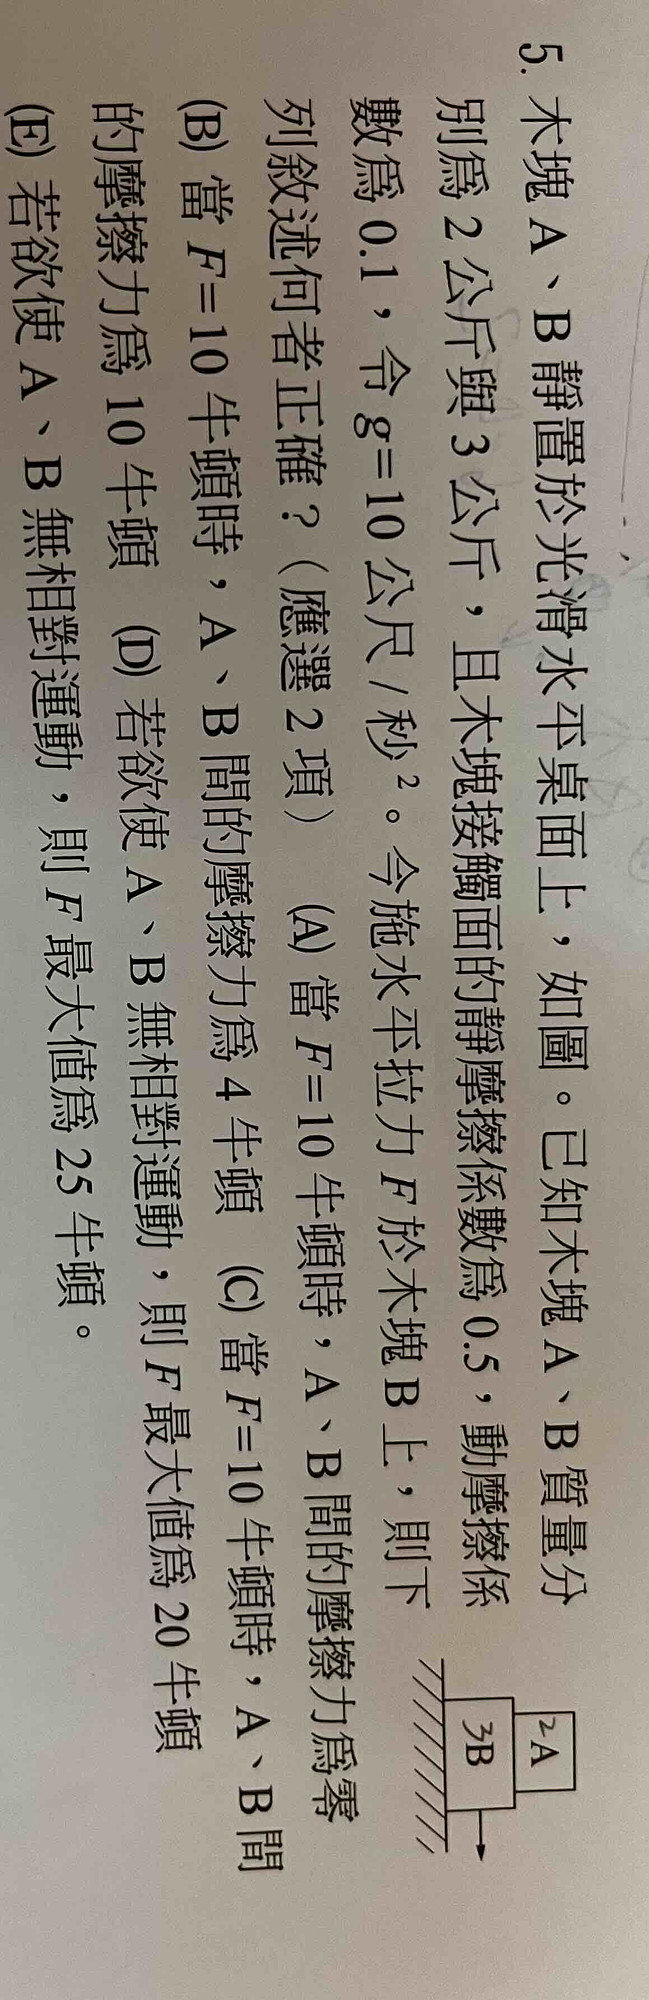 5. 木塊 A、B 靜置於光滑水平桌面上，如圖。已知木塊 A、B 質量分
別為 2 公斤與 3 公斤，且木塊接觸面的靜摩擦係數為 0.5，動摩擦係
數為 0.1，令 g=10 公尺/秒²。今施水平拉力 F 於木塊 B 上，則下
列敘述何者正確？（應選 2 項） (A) 當 F=10 牛頓時，A、B 間的摩擦力為零
(B) 當 F=10 牛頓時，A、B 間的摩擦力為 4 牛頓 (C) 當 F=10 牛頓時，A、B 間
的摩擦力為 10 牛頓 (D) 若欲使 A、B 無相對運動，則 F 最大值為 20 牛頓
(E) 若欲使 A、B 無相對運動，則 F 最大值為 25 牛頓。
2A
3B